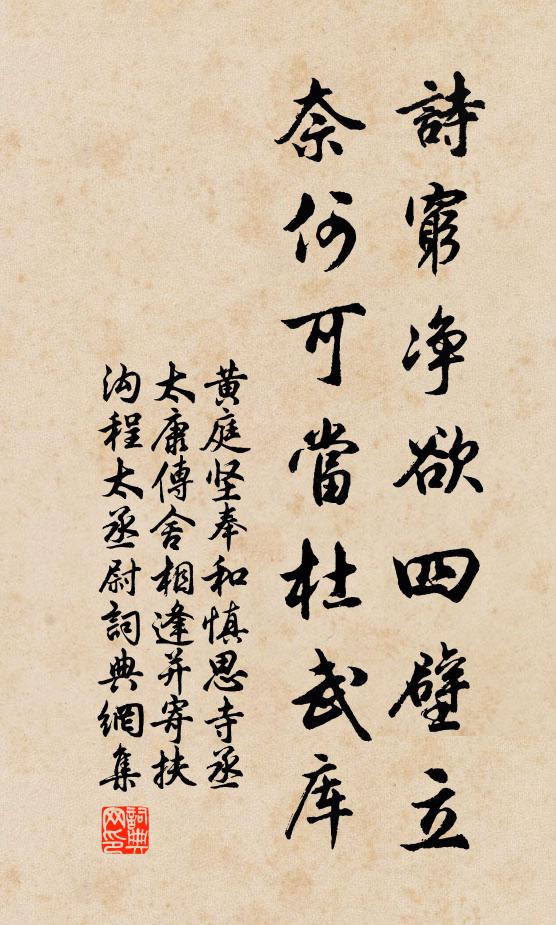 詩窮净欲四壁立
奈何可當杜武库
黄庭坚奉和慎思寺丞
太康傳舍相逢并寄扶
沟程太丞尉詞典網集
詞典网印